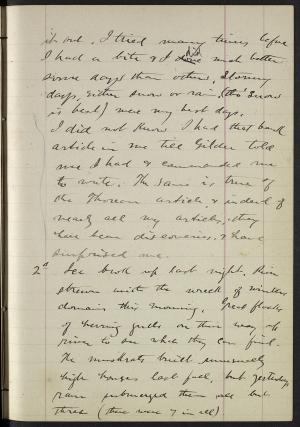 it out. I tried many times before
I had a bite & I did much better
some days than others. Stormy
days, either snow or rain (tho' snow
is best) were my best days.
I did not know I had that bank
article in me till Gilder told
me I had & commanded me
to write. The same is true of
the Thoreau article, & indeed of
nearly all my articles, they
have been discoveries, & have
surprised me.
2d Ice broke up last night. River
strewn with the wreck of winters
domain this morning. Great flocks
of herring gulls on their way up
river to see what they can find.
The muskrats built unusually
high houses last fall, but yesterdays
rain submerged them all but
three (there were 7 in all)